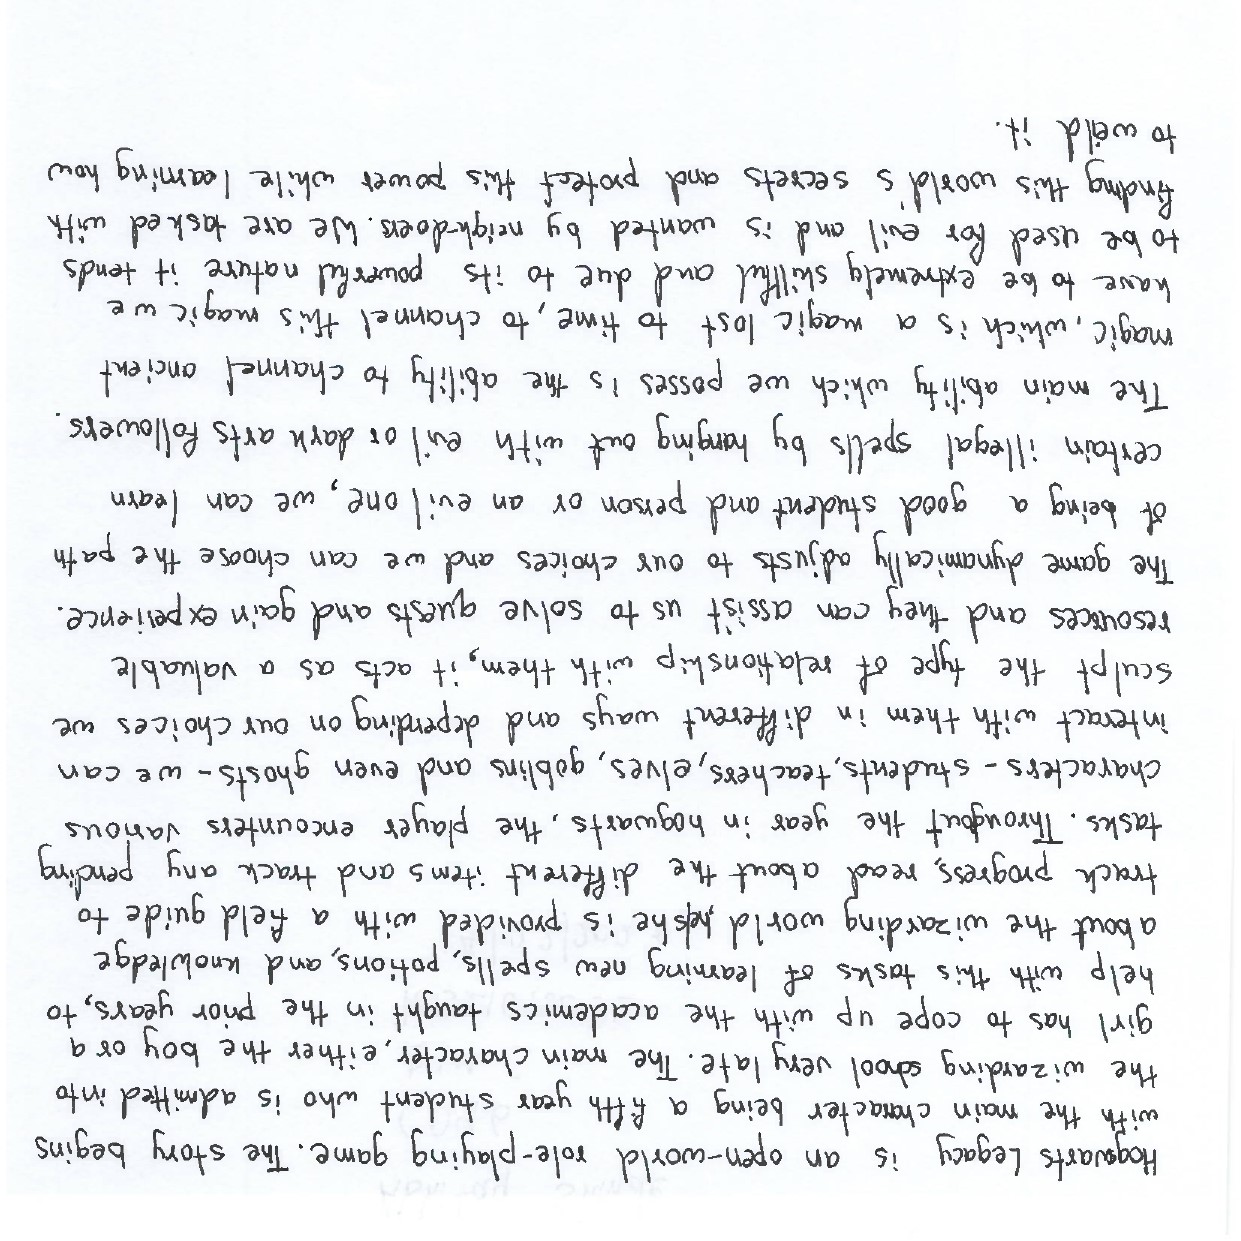 Hogwarts Legacy is an open-world role-playing game. The story begins
with the main character being a fifth year student who is admitted into
the wizarding school very late. The main character, either the boy or a
girl has to cope up with the academics taught in the prior years, to
help with this tasks of learning new spells, potions, and knowledge
about the wizarding world, he/she is provided with a field guide to
track progress, read about the different items and track any pending
tasks. Througout the year in hogwarts, the player encounters various
characters - students, teachers, elves, goblins and even ghosts - we can
interact with them in different ways and depending on our choices we
sculpt the type of relationship with them, it acts as a valuable
resources and they can assist us to solve quests and gain experience.
The game dynamically adjusts to our choices and we can choose the path
of being a good student and person or an evil one, we can learn
certain illegal spells by hanging out with evil or dark arts followers.
The main ability which we posses is the ability to channel ancient
magic, which is a magic lost to time, to channel this magic we
have to be extremely skillful and due to its powerful nature it tends
to be used for evil and is wanted by neigh-doers. We are tasked with
finding this world's secrets and protect this power while learning how
to weild it.